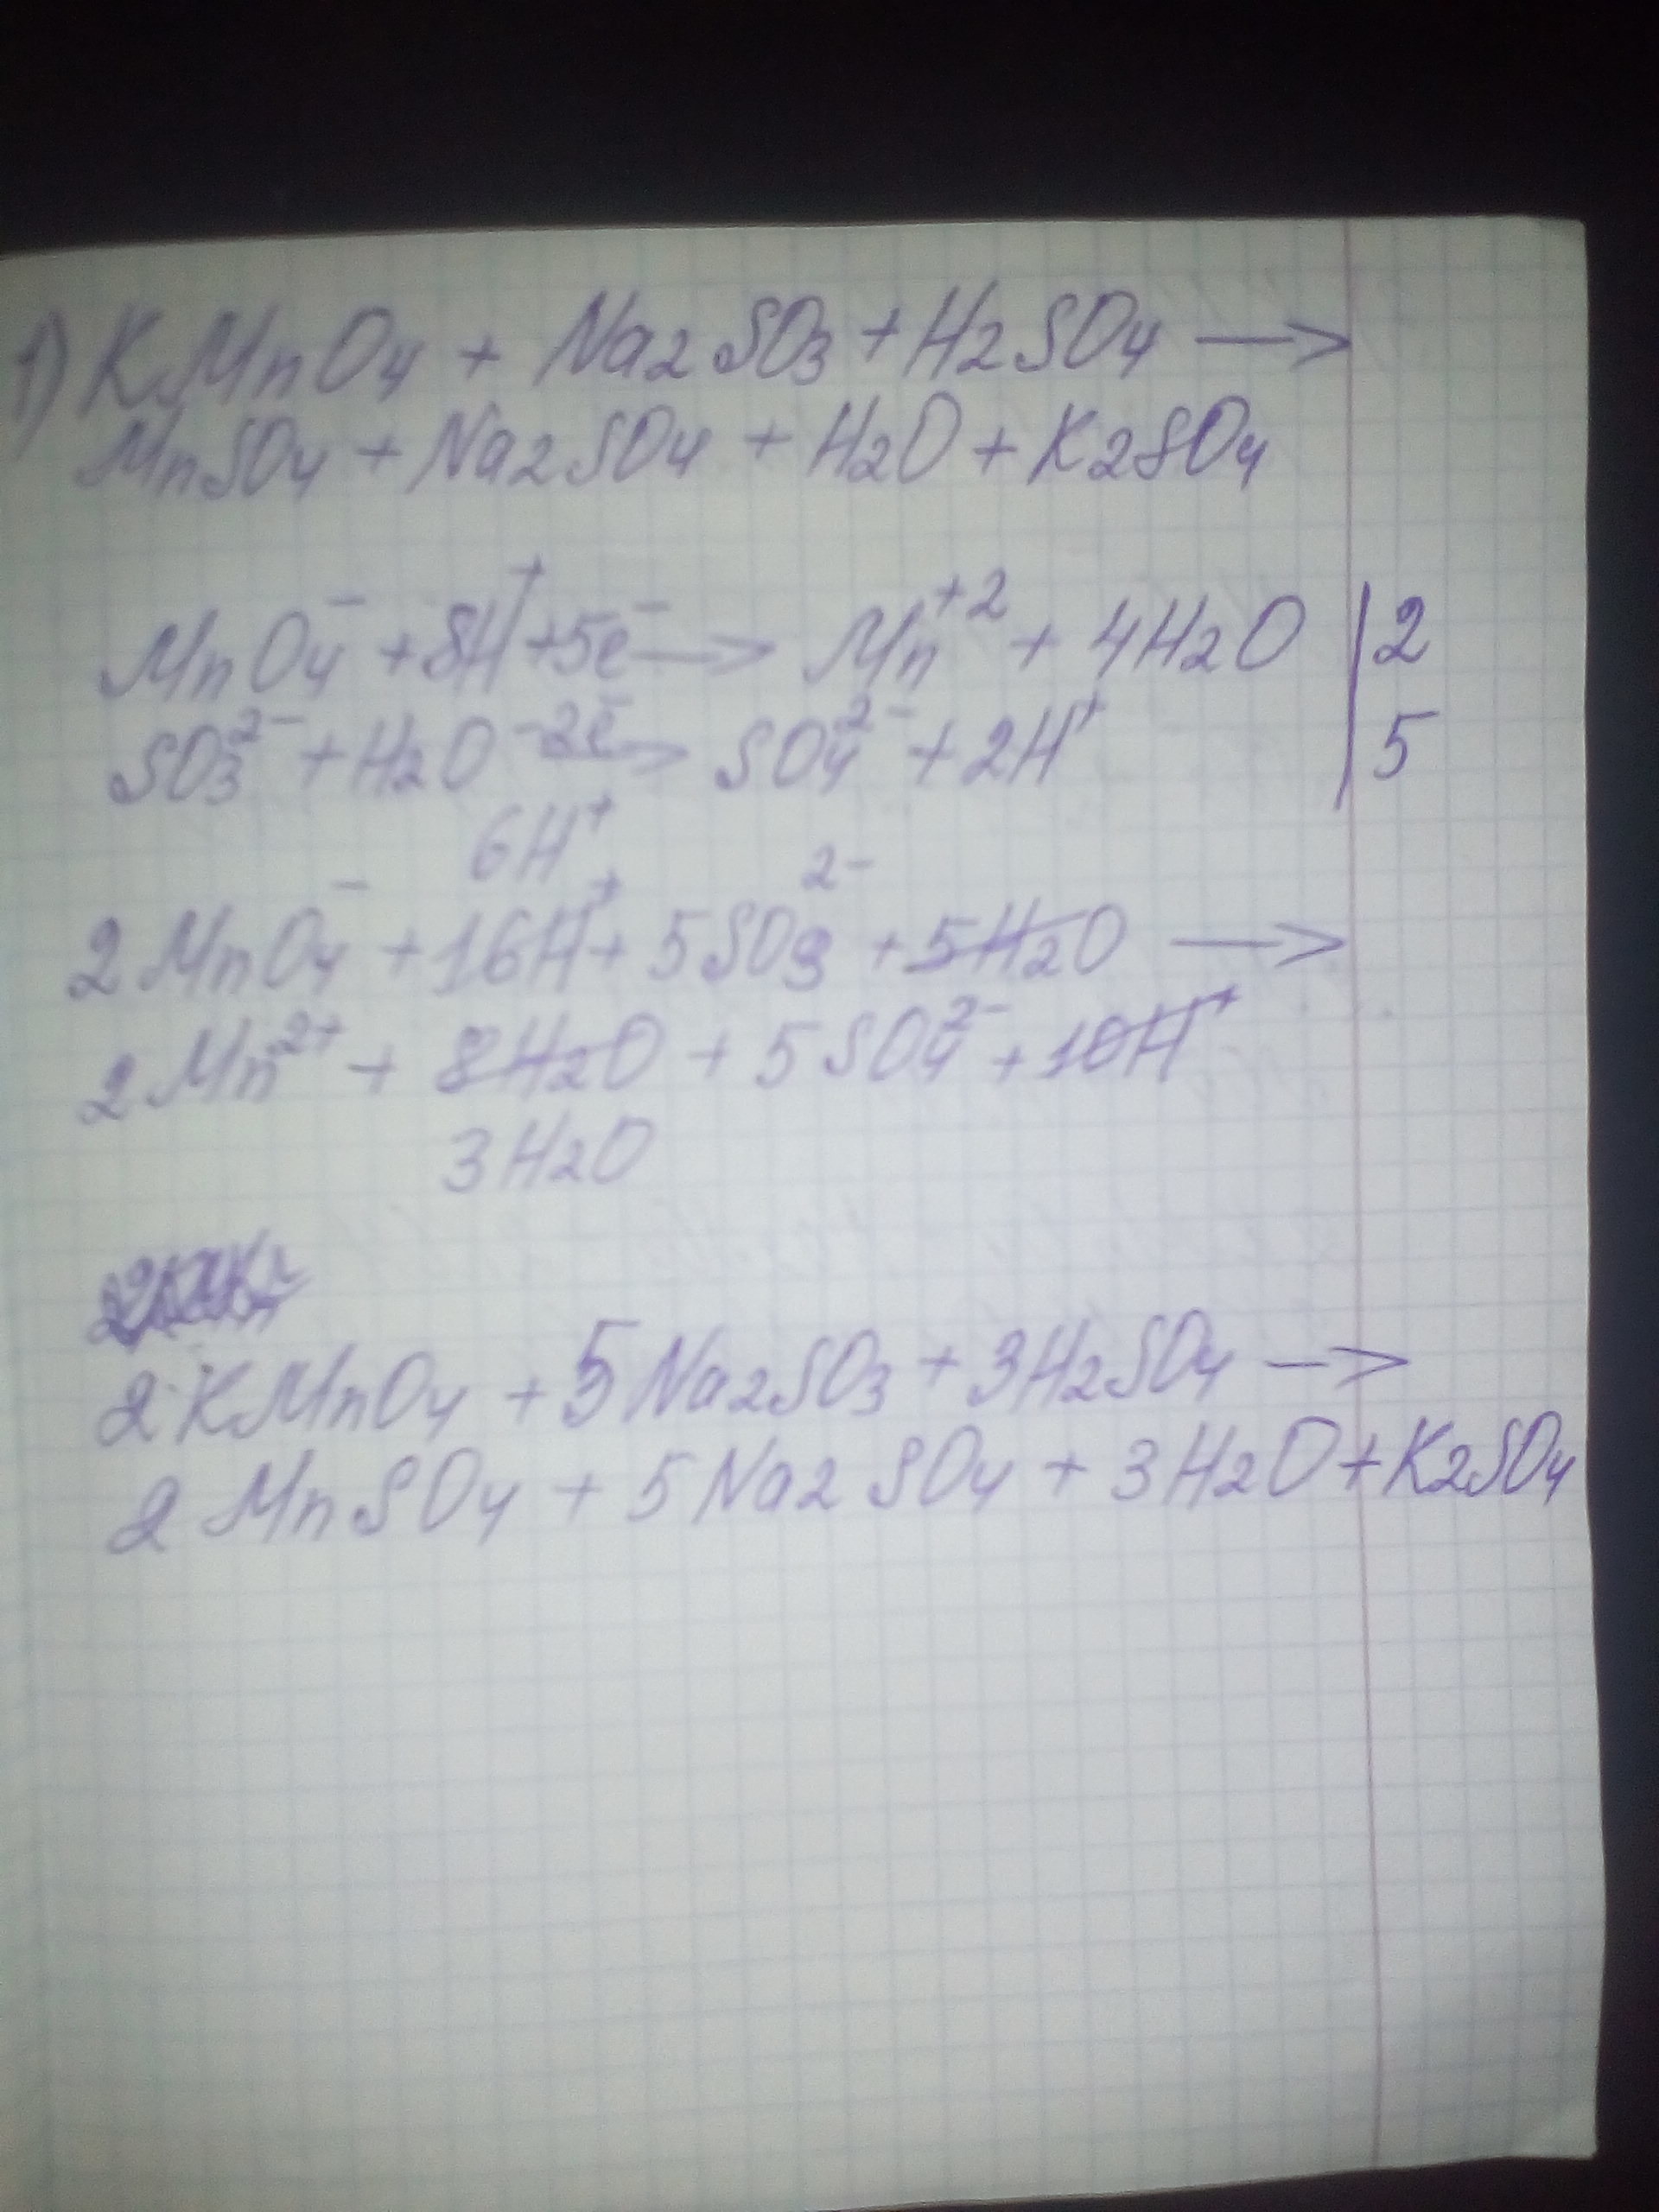 1) KMnO4 + Na2SO3 + H2SO4 →
MnSO4 + Na2SO4 + H2O + K2SO4
MnO4⁻ + 8H⁺ + 5e⁻ → Mn⁺² + 4H2O | 2
SO3²⁻ + H2O -2e⁻→ SO4²⁻ + 2H⁺ | 5
6H⁺
2MnO4⁻ + 16H⁺ + 5SO3²⁻ + 5H2O →
2Mn²⁺ + 8H2O + 5SO4²⁻ + 10H⁺
3H2O
2KMnO4 + 5Na2SO3 + 3H2SO4 →
2MnSO4 + 5Na2SO4 + 3H2O + K2SO4